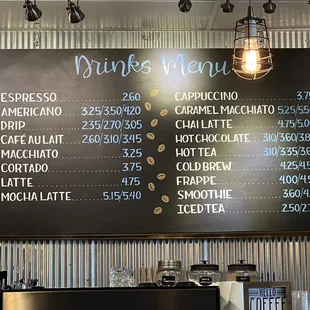 Drinks Menu
ESPRESSO 2.60
AMERICANO 3.25/3.50/4.20
DRIP 2.35/2.70/3.05
CAFÉ AU LAIT 2.60/3.10/3.45
MACCHIATO 3.25
CORTADO 3.75
LATTE 4.75
MOCHA LATTE 5.15/5.40
CAPPUCCINO
CARAMEL MACCHIATO 5.25/
CHAI LATTE 4.75/
HOT CHOCOLATE 3.10/3.60/
HOT TEA 3.10/3.35/
COLD BREW 4.25/
FRAPPE 4.00/
SMOOTHIE 3.60/
ICED TEA 2.50/
HELLO
COFFEE